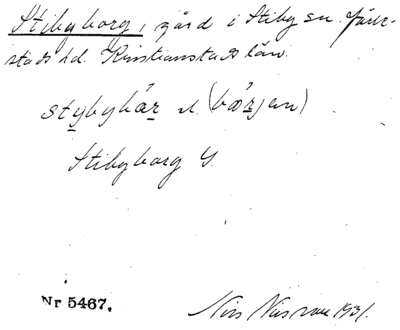 Stibyborg, gård i Stiby sn. Järre-
stads hd. Kristianstads län.
stybybår l. (bårjen)
Stibyborg G.
Nr 5467.
Nils 1931.